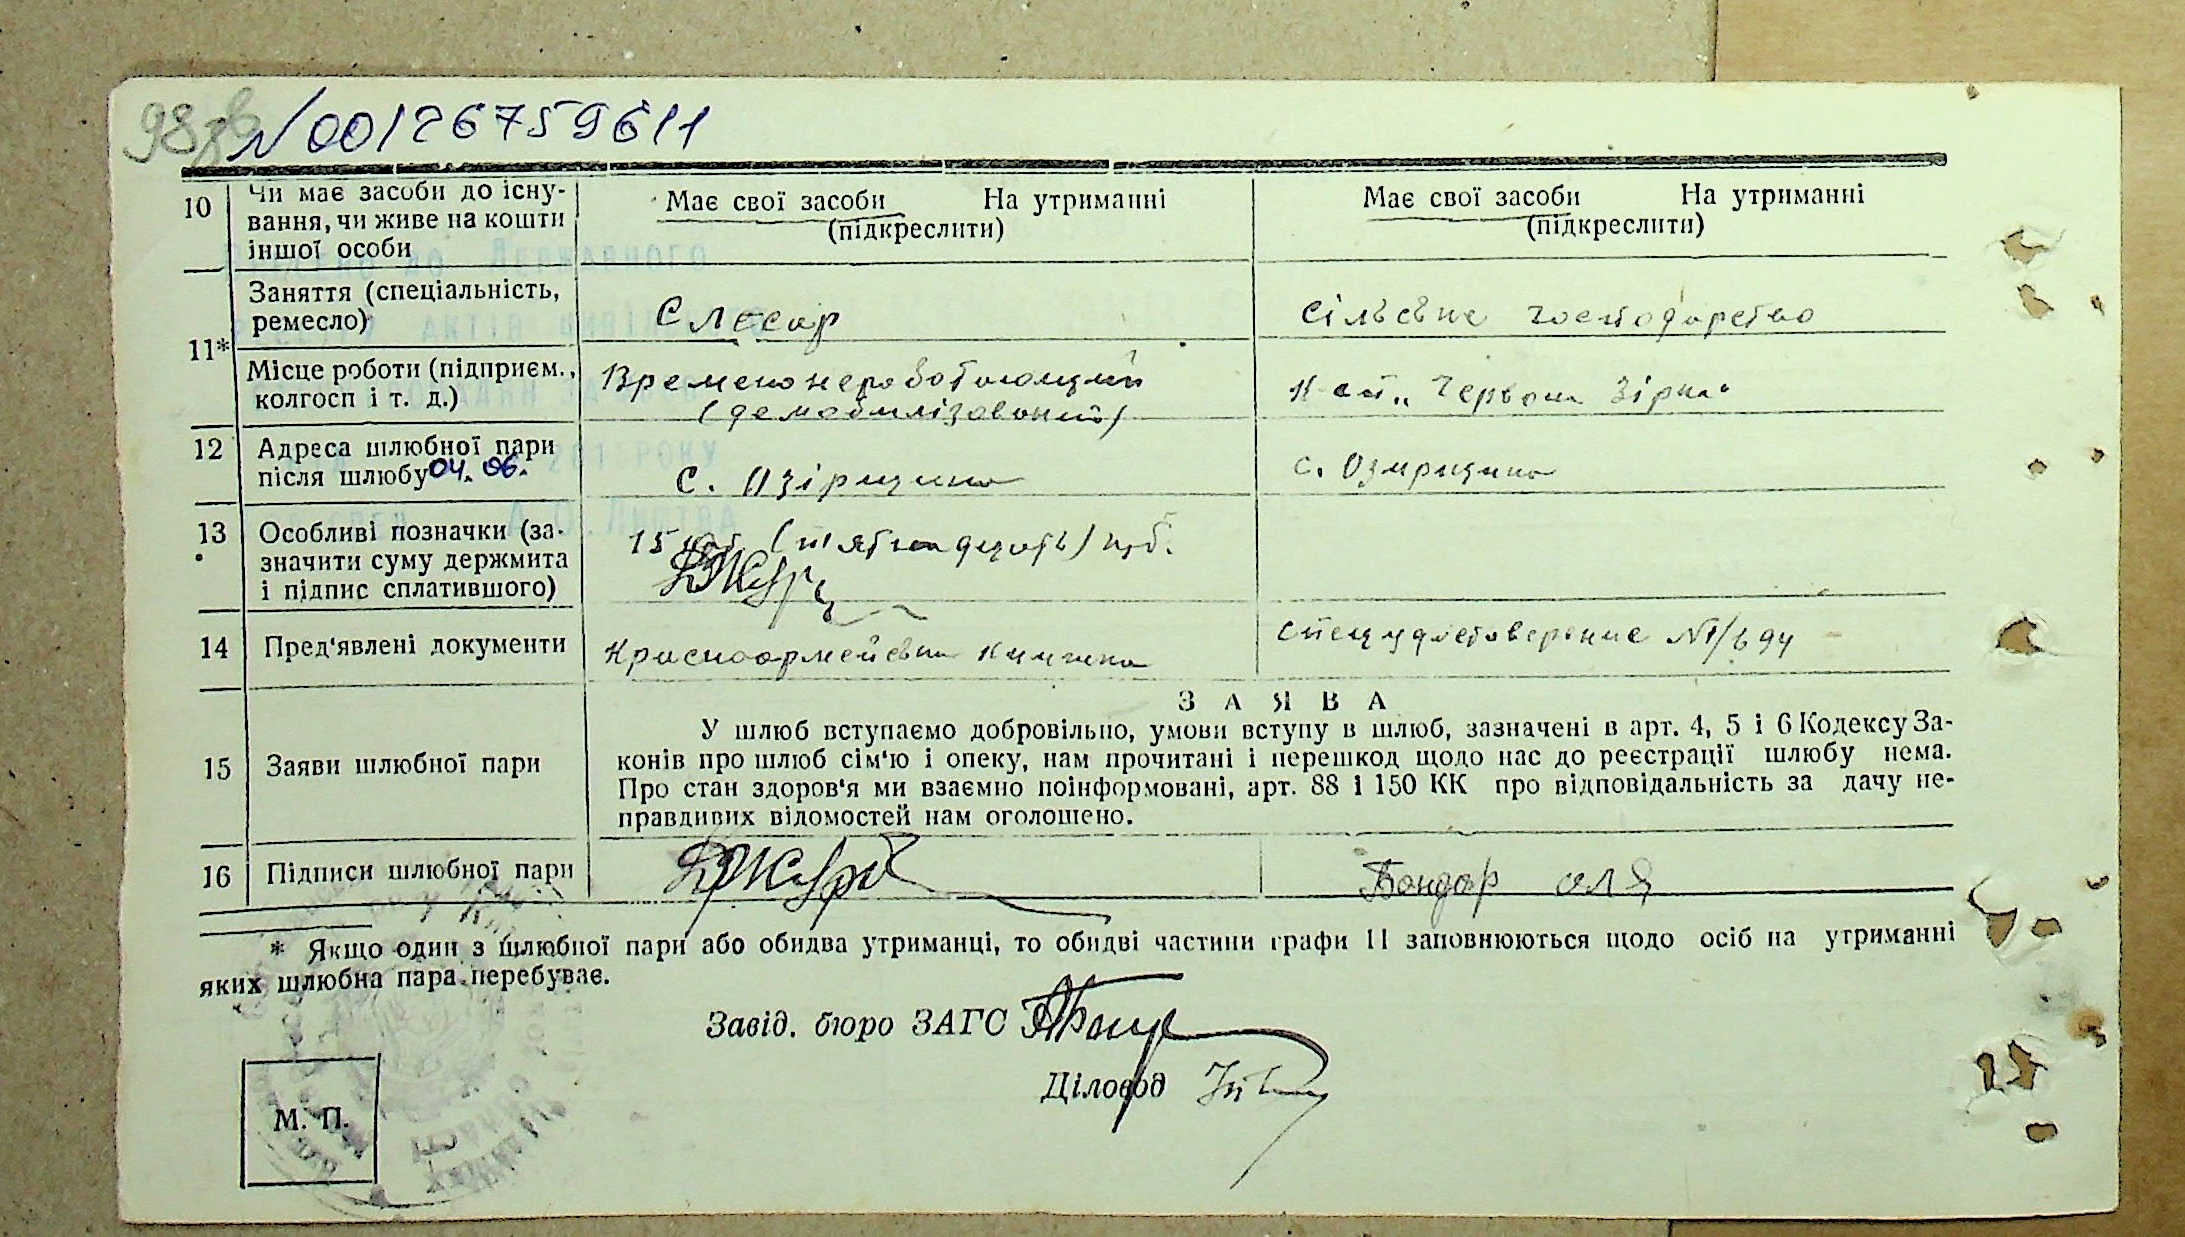 98зв N 00126759611
10 Чи має засоби до існу-
вання, чи живе на кошти
іншої особи
Має свої засоби На утриманні
(підкреслити)
Має свої засоби На утриманні
(підкреслити)
11* Заняття (спеціальність,
ремесло)
Слєсар
сільське господарство
Місце роботи (підприєм.,
колгосп і т. д.)
Временонероботающий
(демобилізований)
К-сп „Червона Зірка"
12 Адреса шлюбної пари
після шлюбу 04. 06.
2015 РОКУ
с. Озірщина
с. Озирщина
13 Особливі позначки (за-
значити суму держмита
і підпис сплатившого)
15 (пятнадцать)
14 Пред'явлені документи
Красноармейська книжка
спецудостоверение №1/694
З А Я В А
15 Заяви шлюбної пари
У шлюб вступаємо добровільно, умови вступу в шлюб, зазначені в арт. 4, 5 і 6 Кодексу За-
конів про шлюб сім'ю і опеку, нам прочитані і перешкод щодо нас до реєстрації шлюбу нема.
Про стан здоров'я ми взаємно поінформовані, арт. 88 і 150 КК про відповідальність за дачу не-
правдивих відомостей нам оголошено.
16 Підписи шлюбної пари
Бондар Оля
* Якщо один з шлюбної пари або обидва утриманці, то обидві частини графи 11 заповнюються щодо осіб на утриманні
яких шлюбна пара перебуває.
Завід. бюро ЗАГС
Діловод
М. П.